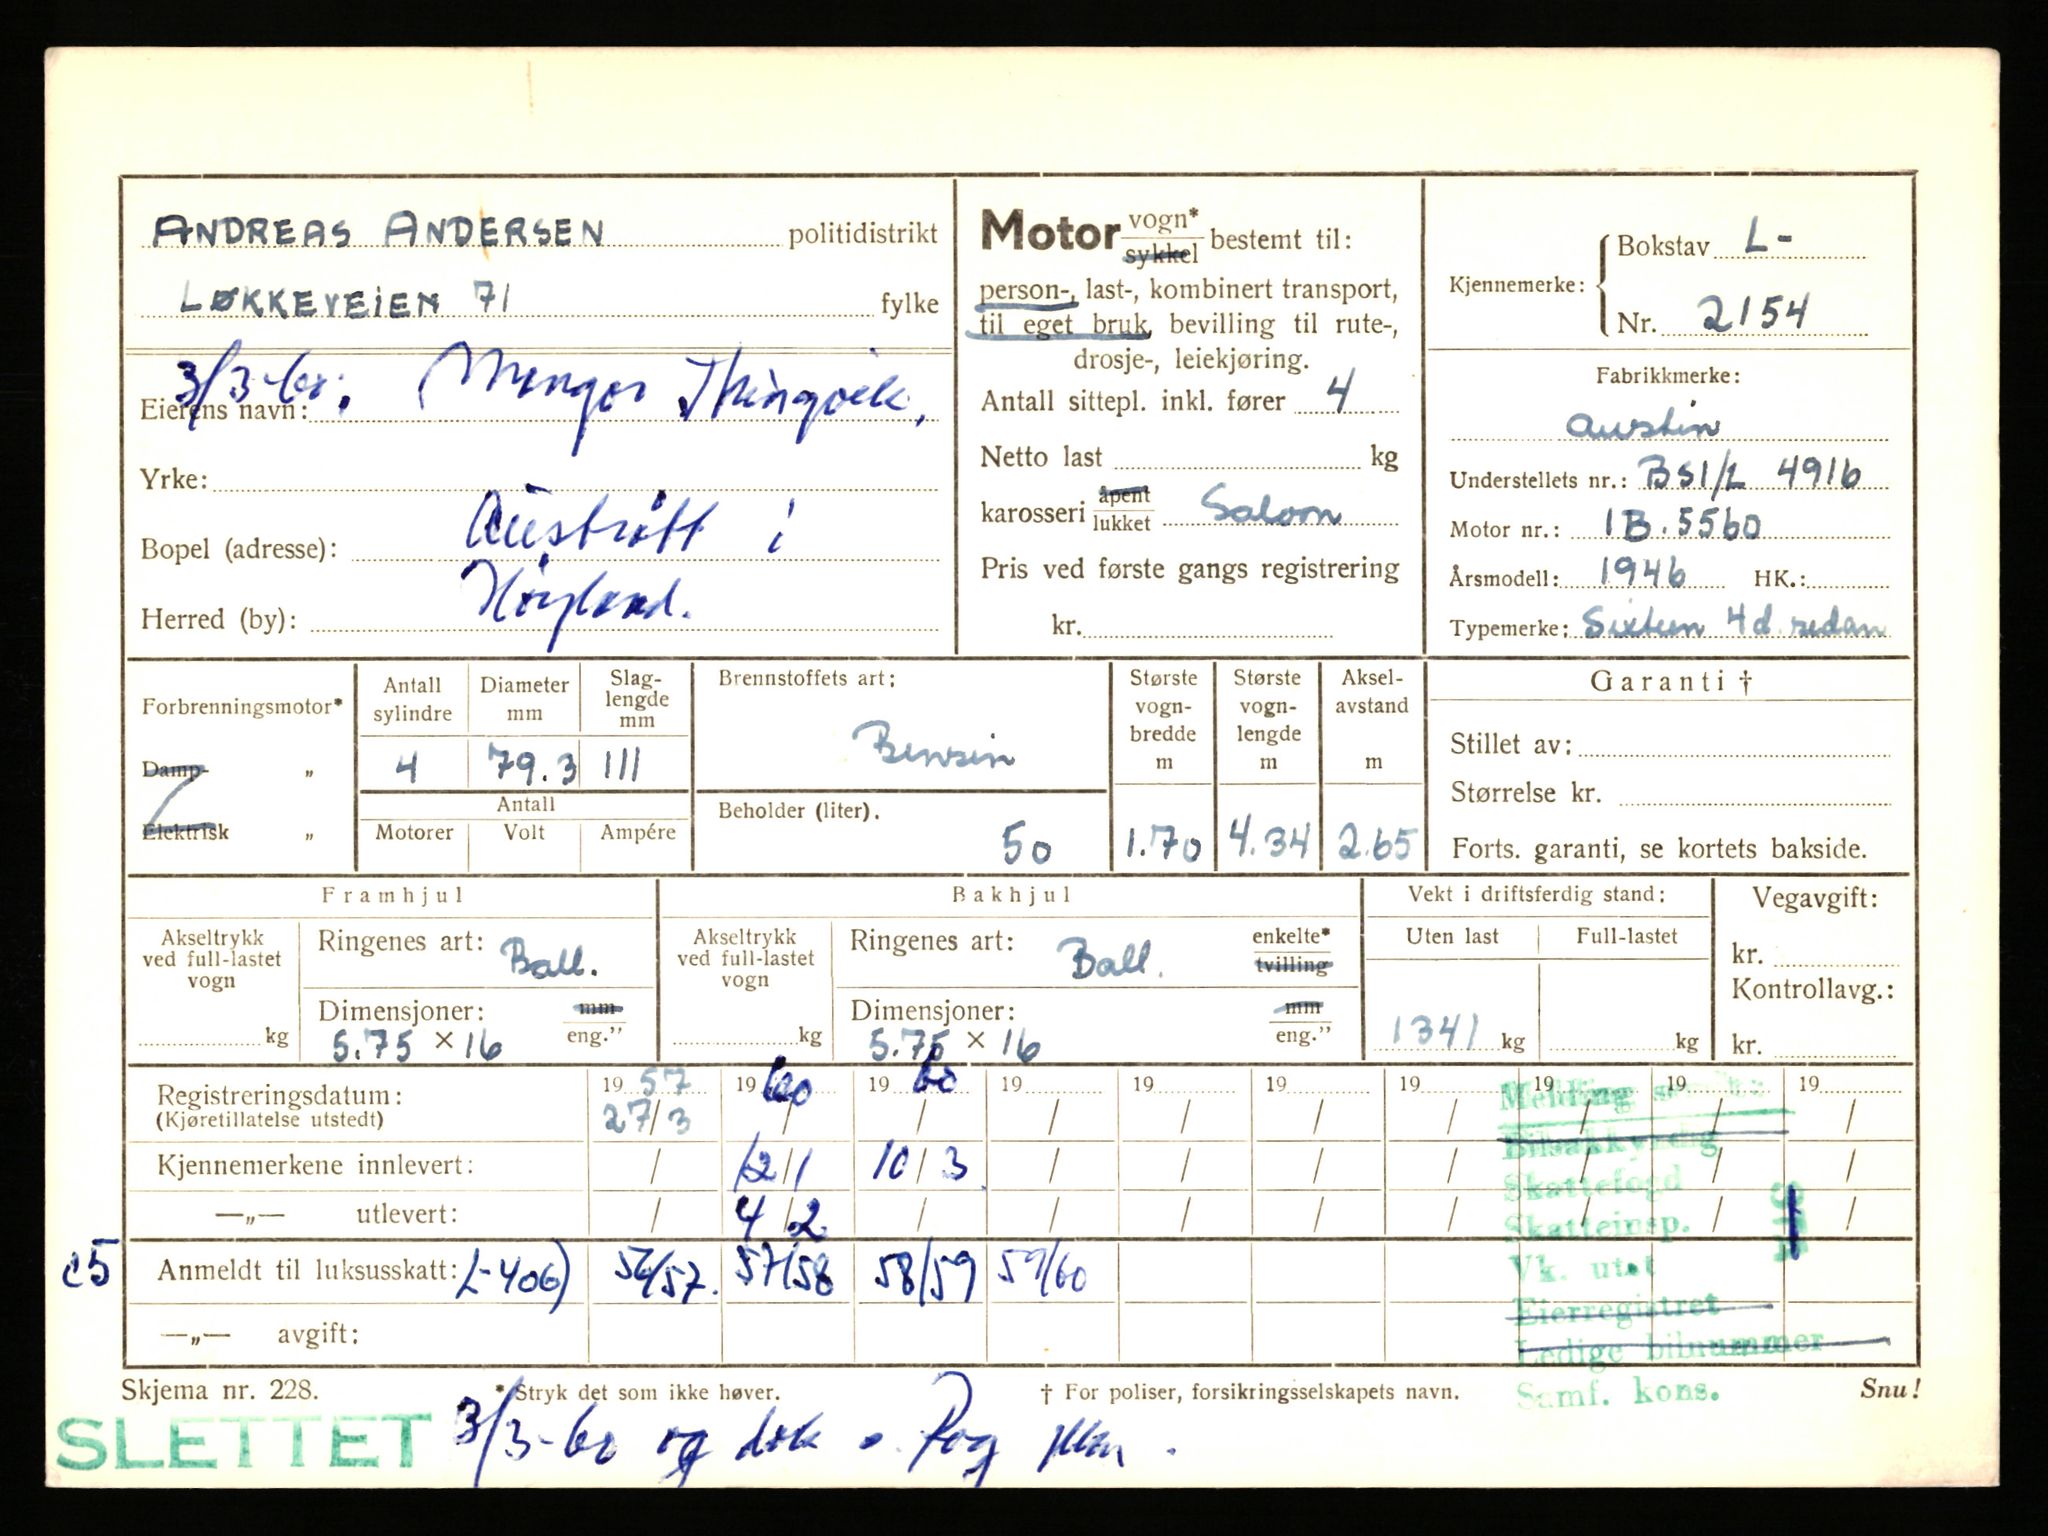 ANDREAS ANDERSEN politidistrikt
LØKKEVEIEN 71 fylke
3/3-60.
Eierens navn:
Yrke:
Bopel (adresse): Austrått i
Herred (by): Høyland.
Motor vogn* sykkel bestemt til:
person-, last-, kombinert transport,
til eget bruk, bevilling til rute-,
drosje-, leiekjøring.
Antall sittepl. inkl. fører 4
Netto last kg
karosseri åpent lukket Saloon
Pris ved første gangs registrering
kr.
Kjennemerke: Bokstav L-
Nr. 2154
Fabrikkmerke:
Austin
Understellets nr.: BS1/L 4916
Motor nr.: 1B.5560
Årsmodell: 1946 HK.:
Typemerke: Sixteen 4d. sedan
Forbrenningsmotor*
Damp- „
Elektrisk „
Antall sylindre Diameter mm Slag-lengde mm
4 79.3 111
Antall
Motorer Volt Ampére
Brennstoffets art:
Bensin
Beholder (liter).
50
Største vogn-bredde m
1.70
Største vogn-lengde m
4.34
Aksel-avstand m
2.65
Garanti †
Stillet av:
Størrelse kr.
Forts. garanti, se kortets bakside.
Framhjul
Akseltrykk ved full-lastet vogn
kg
Ringenes art: Ball.
Dimensjoner: mm eng.”
5.75 × 16
Bakhjul
Akseltrykk ved full-lastet vogn
kg
Ringenes art: Ball. enkelte* tvilling
Dimensjoner: mm eng.”
5.75 × 16
Vekt i driftsferdig stand:
Uten last Full-lastet
1341 kg kg
Vegavgift:
kr.
Kontrollavg.:
kr.
Registreringsdatum: 19 57 19 60 19 60 19 19 19 19 19 19
(Kjøretillatelse utstedt) 27/3 / / / / / / / / /
Kjennemerkene innlevert: / 12/1 10/3 / / / / / / /
—„— utlevert: / 4/2 / / / / / / / /
Anmeldt til luksusskatt: (L-406) 56/57. 57/58 58/59 59/60
—„— avgift:
Melding
Bilsakkyndig
Skattefogd
Skatteinsp.
Vk. utst
Eierregistret
Ledige bilnummer
Samf. kons.
Skjema nr. 228. * Stryk det som ikke høver. † For poliser, forsikringsselskapets navn. Snu!
SLETTET 3/3-60 og